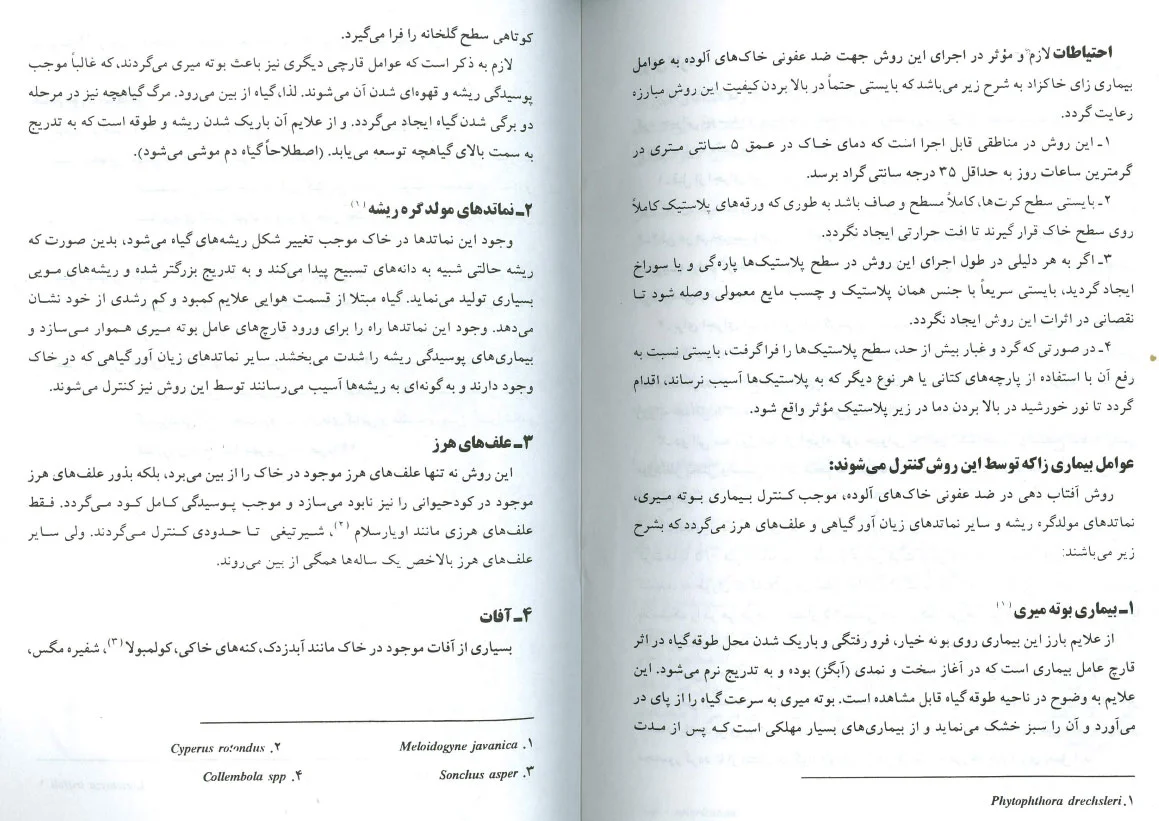 احتیاطات لازم و مؤثر در اجرای این روش جهت ضد عفونی خاک‌های آلوده به عوامل
بیماری زای خاکزاد به شرح زیر می‌باشد که بایستی حتماً در بالا بردن کیفیت این روش مبارزه
رعایت گردد.
۱ـ این روش در مناطقی قابل اجرا است که دمای خاک در عمق ۵ سانتی متری در
گرمترین ساعات روز به حداقل ۳۵ درجه سانتی‌گراد برسد.
۲ـ بایستی سطح کرت‌ها، کاملاً مسطح و صاف باشد به طوری که ورقه‌های پلاستیک کاملاً
روی سطح خاک قرار گیرند تا افت حرارتی ایجاد نگردد.
۳ـ اگر به هر دلیلی در طول اجرای این روش در سطح پلاستیک‌ها پاره‌گی و یا سوراخ
ایجاد گردید، بایستی سریعاً با جنس همان پلاستیک و چسب مایع معمولی وصله شود تا
نقصانی در اثرات این روش ایجاد نگردد.
۴ـ در صورتی که گرد و غبار بیش از حد، سطح پلاستیک‌ها را فرا گرفت، بایستی نسبت به
رفع آن با استفاده از پارچه‌های کتانی یا هر نوع دیگر که به پلاستیک‌ها آسیب نرساند، اقدام
گردد تا نور خورشید در بالا بردن دما در زیر پلاستیک مؤثر واقع شود.
عوامل بیماری زا که توسط این روش کنترل می‌شوند:
روش آفتاب دهی در ضد عفونی خاک‌های آلوده، موجب کنترل بیماری بوته میری،
نماتدهای مولدگره ریشه و سایر نماتدهای زیان آور گیاهی و علف‌های هرز می‌گردد که بشرح
زیر می‌باشند:
۱ـ بیماری بوته میری (۱)
از علایم بارز این بیماری روی بوته خیار، فرو رفتگی و باریک شدن محل طوقه گیاه در اثر
قارچ عامل بیماری است که در آغاز سخت و نمدی (آبگز) بوده و به تدریج نرم می‌شود. این
علایم به وضوح در ناحیه طوقه گیاه قابل مشاهده است. بوته میری به سرعت گیاه را از پای در
می‌آورد و آن را سبز خشک می‌نماید و از بیماری‌های بسیار مهلکی است که پس از مدت
۱. Phytophthora drechsleri
کوتاهی سطح گلخانه را فرا می‌گیرد.
لازم به ذکر است که عوامل قارچی دیگری نیز باعث بوته میری می‌گردند، که غالباً موجب
پوسیدگی ریشه و قهوه‌ای شدن آن می‌شوند. لذا، گیاه از بین می‌رود. مرگ گیاهچه نیز در مرحله
دو برگی شدن گیاه ایجاد می‌گردد. و از علایم آن باریک شدن ریشه و طوقه است که به تدریج
به سمت بالای گیاهچه توسعه می‌یابد. (اصطلاحاً گیاه دم موشی می‌شود).
۲ـ نماتدهای مولدگره ریشه (۱)
وجود این نماتدها در خاک موجب تغییر شکل ریشه‌های گیاه می‌شود، بدین صورت که
ریشه حالتی شبیه به دانه‌های تسبیح پیدا می‌کند و به تدریج بزرگتر شده و ریشه‌های مویی
بسیاری تولید می‌نماید. گیاه مبتلا از قسمت هوایی علایم کمبود و کم رشدی از خود نشان
می‌دهد. وجود این نماتدها راه را برای ورود قارچ‌های عامل بوته میری هموار می‌سازد و
بیماری‌های پوسیدگی ریشه را شدت می‌بخشد. سایر نماتدهای زیان آور گیاهی که در خاک
وجود دارند و به گونه‌ای به ریشه‌ها آسیب می‌رسانند توسط این روش نیز کنترل می‌شوند.
۳ـ علف‌های هرز
این روش نه تنها علف‌های هرز موجود در خاک را از بین می‌برد، بلکه بذور علف‌های هرز
موجود در کودحیوانی را نیز نابود می‌سازد و موجب پوسیدگی کامل کود می‌گردد. فقط
علف‌های هرزی مانند اویارسلام (۲)، شیرتیغی تا حدودی کنترل می‌گردند. ولی سایر
علف‌های هرز بالاخص یک ساله‌ها همگی از بین می‌روند.
۴ـ آفات
بسیاری از آفات موجود در خاک مانند آبدزدک، کنه‌های خاکی، کولمبولا (۳)، شفیره مگس،
۱. Meloidogyne javanica ۲. Cyperus rotondus
۳. Sonchus asper ۴. Collembola spp